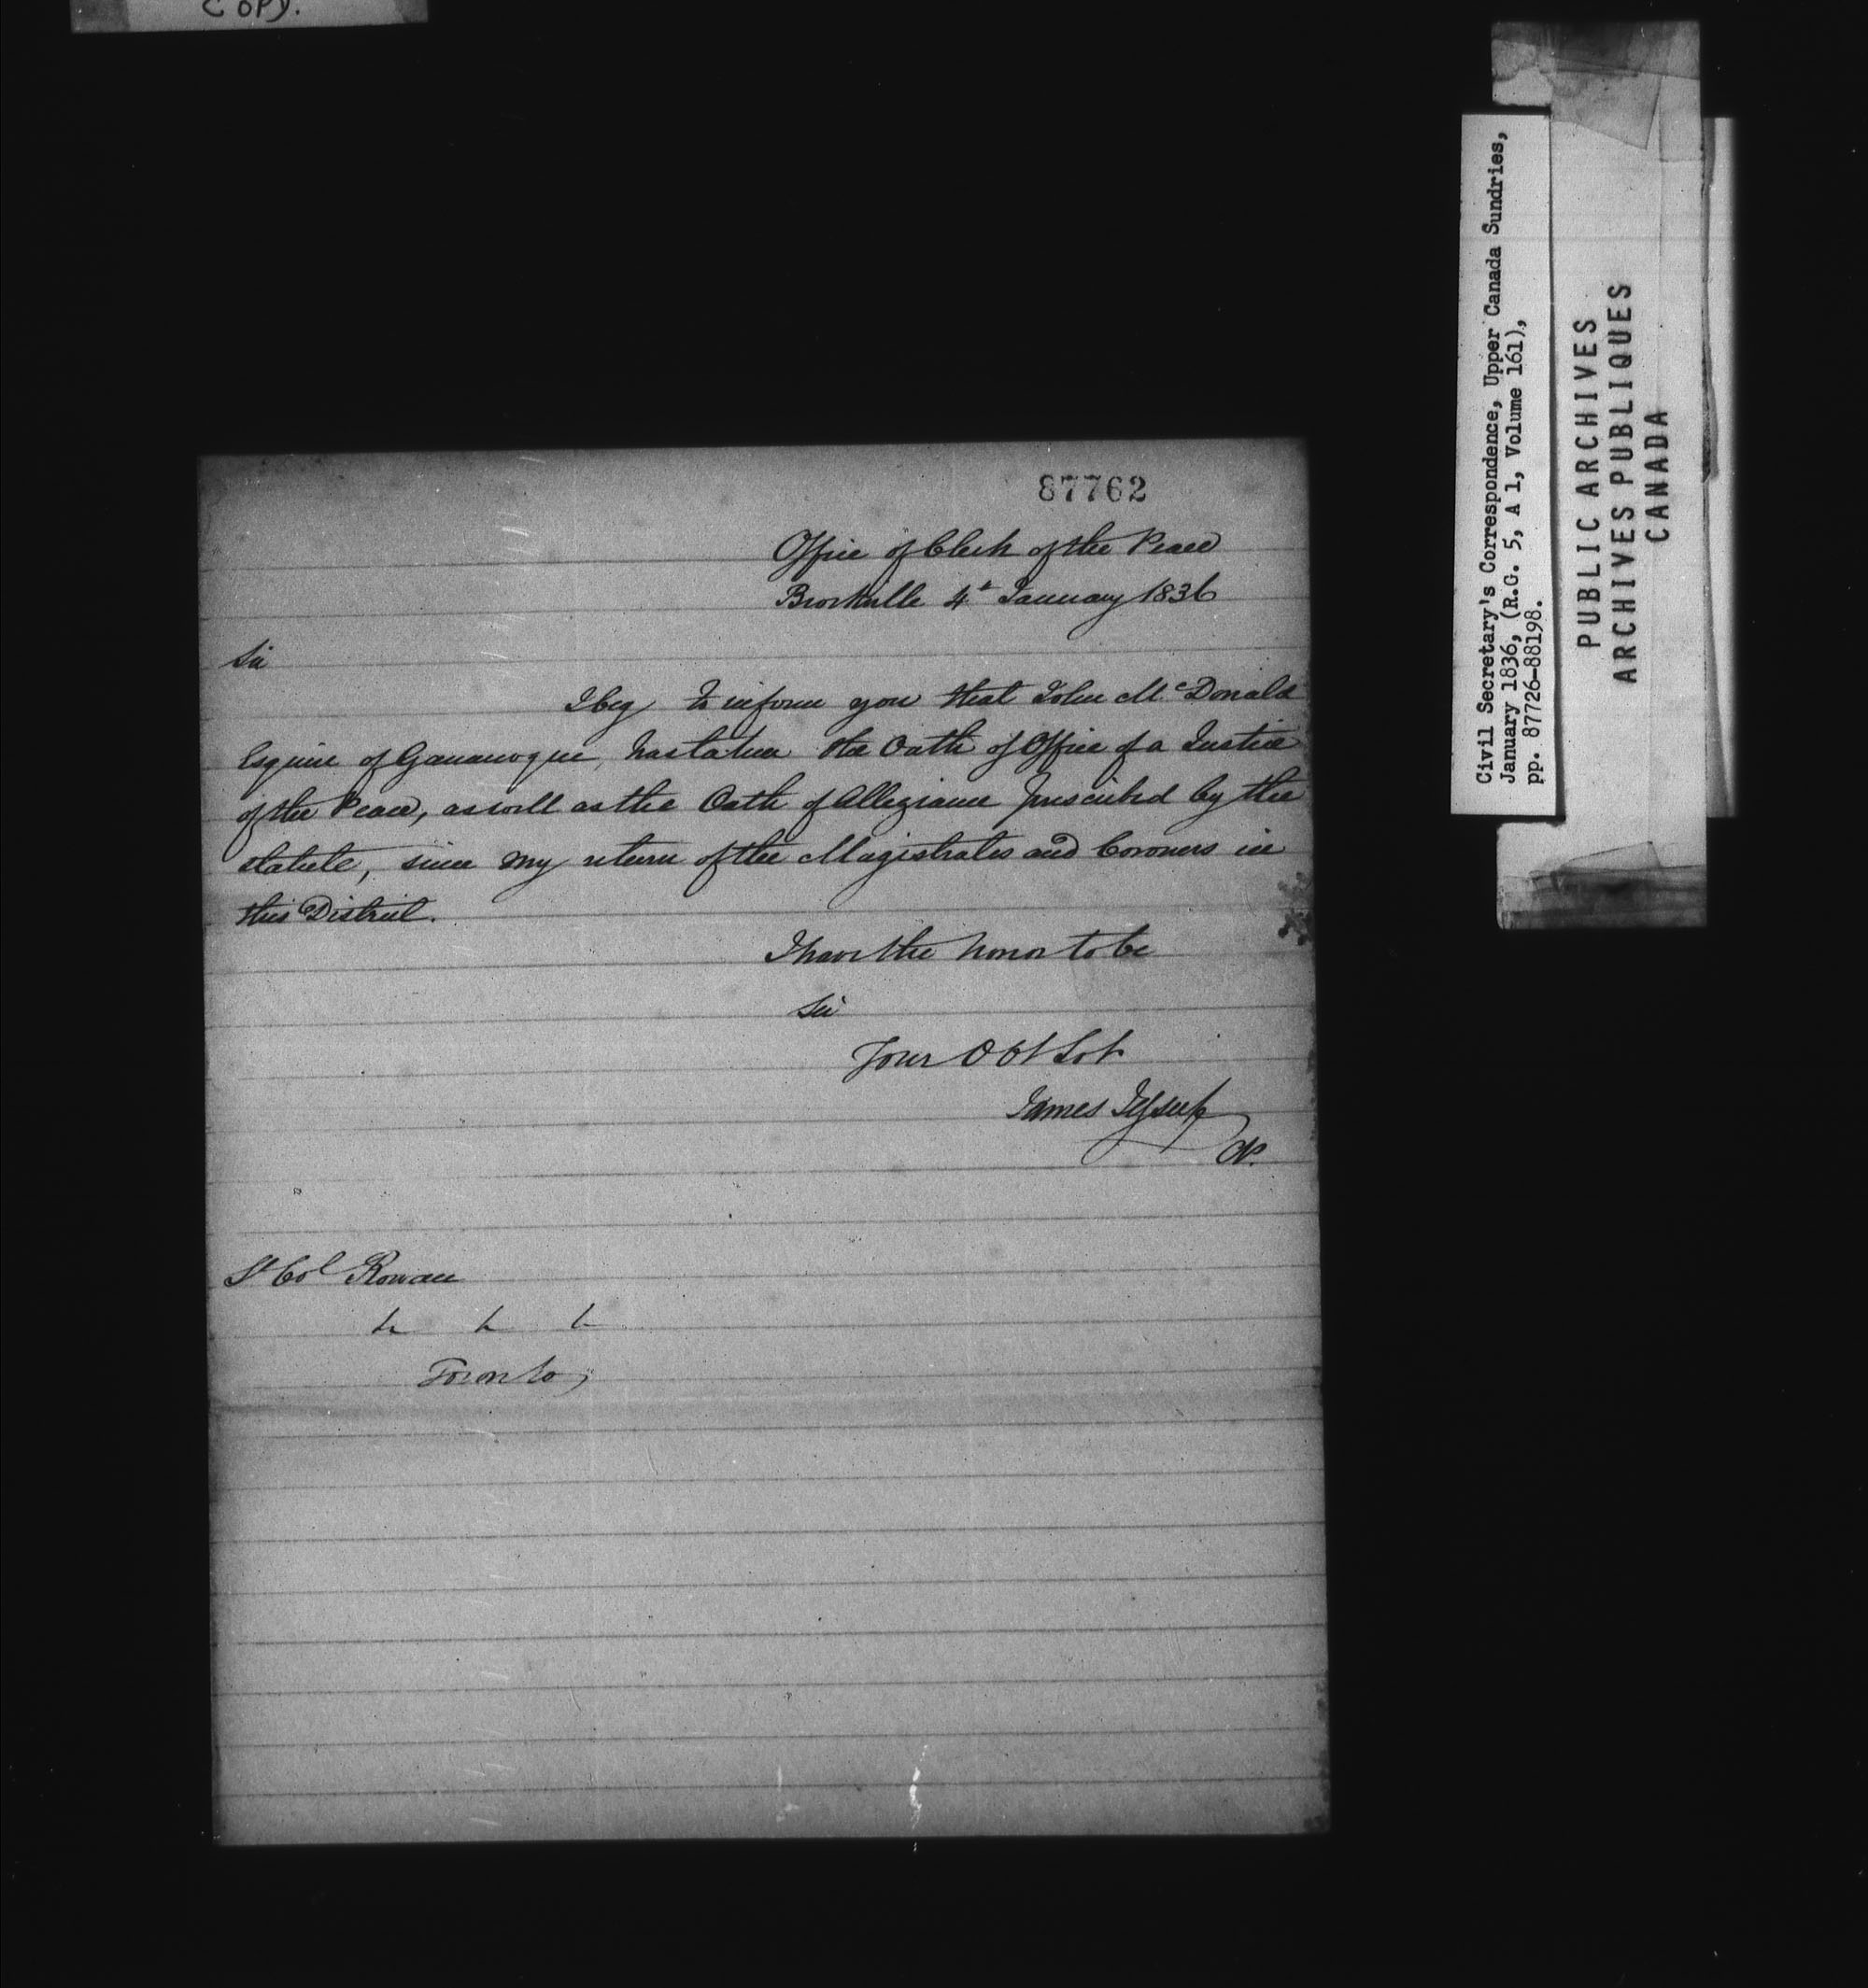 COPY.
87762
Office of Clerk of the Peace
Brockville 4th January 1836
Sir
I beg to inform you that John McDonald
Esquire of Gananoque, has taken the Oath of Office of a Justice
of the Peace, as well as the Oath of Allegiance prescribed by the
statute, since my return of the Magistrates and Coroners in
this District.
I have the honor to be
Sir
Your Obt Svt
James Jessup
CP.
Lt Col Rowan
&c &c &c
Toronto,
Civil Secretary's Correspondence, Upper Canada Sundries,
January 1836, (R.G. 5, A 1, Volume 161),
pp. 87726-88198.
PUBLIC ARCHIVES
ARCHIVES PUBLIQUES
CANADA